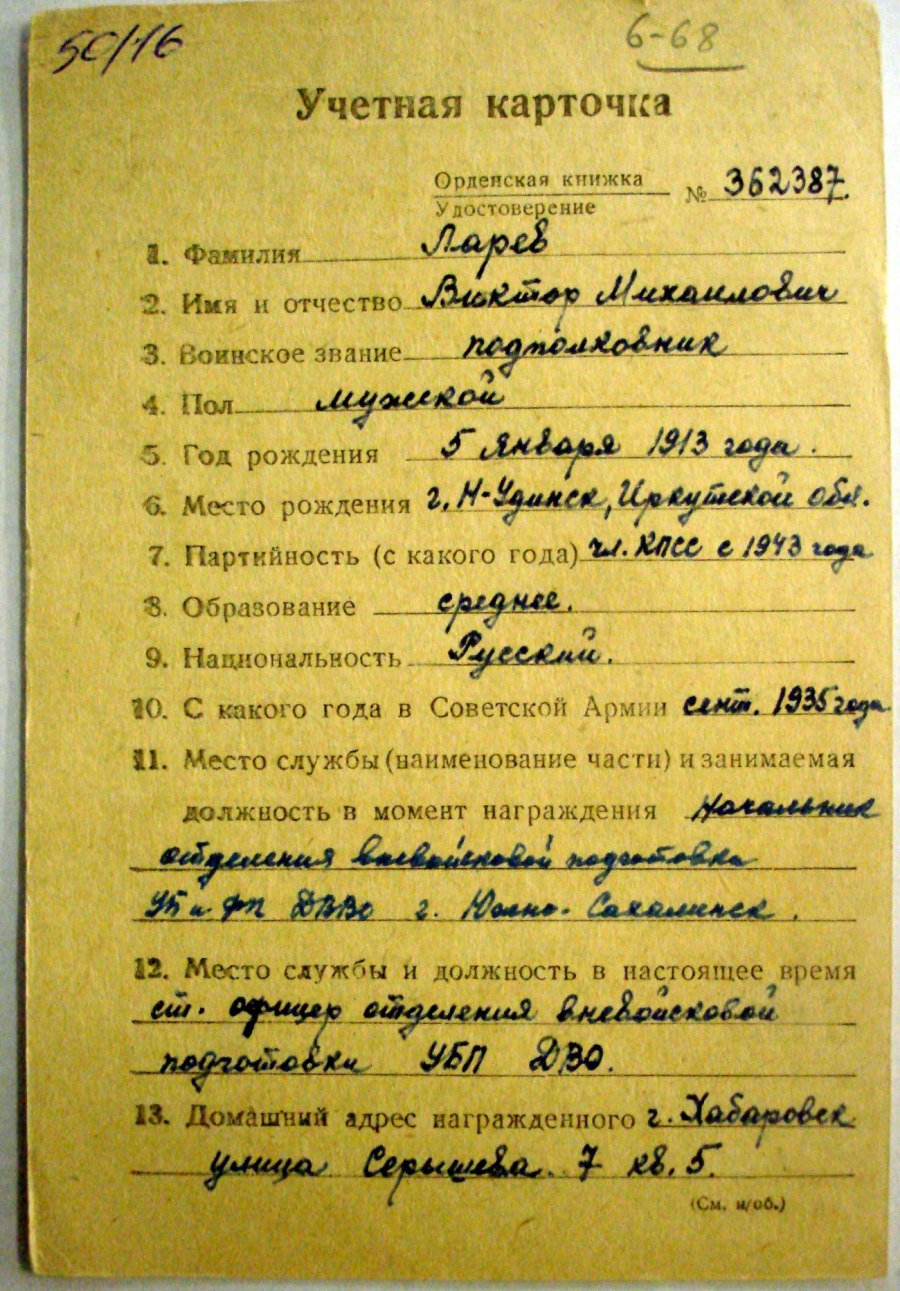 50/16
6-68
Учетная карточка
Орденская книжка
Удостоверение
№ 362387.
1. Фамилия Ларев
2. Имя и отчество Виктор Михаилович
3. Воинское звание подполковник
4. Пол мужской
5. Год рождения 5 января 1913 года.
6. Место рождения г. Н-Удинск, Иркутской обл.
7. Партийность (с какого года) чл. КПСС с 1943 года
8. Образование среднее.
9. Национальность Русский.
10. С какого года в Советской Армии сент. 1935 года
11. Место службы (наименование части) и занимаемая
должность в момент награждения Начальник
отделения вневойсковой подготовки
УБП ДВВО г. Южно-Сахалинск.
12. Место службы и должность в настоящее время
ст. офицер отделения вневойсковой
подготовки УБП ДВО.
13. Домашний адрес награжденного г. Хабаровск
улица Серышева 7 кв. 5.
(См. н/об.)